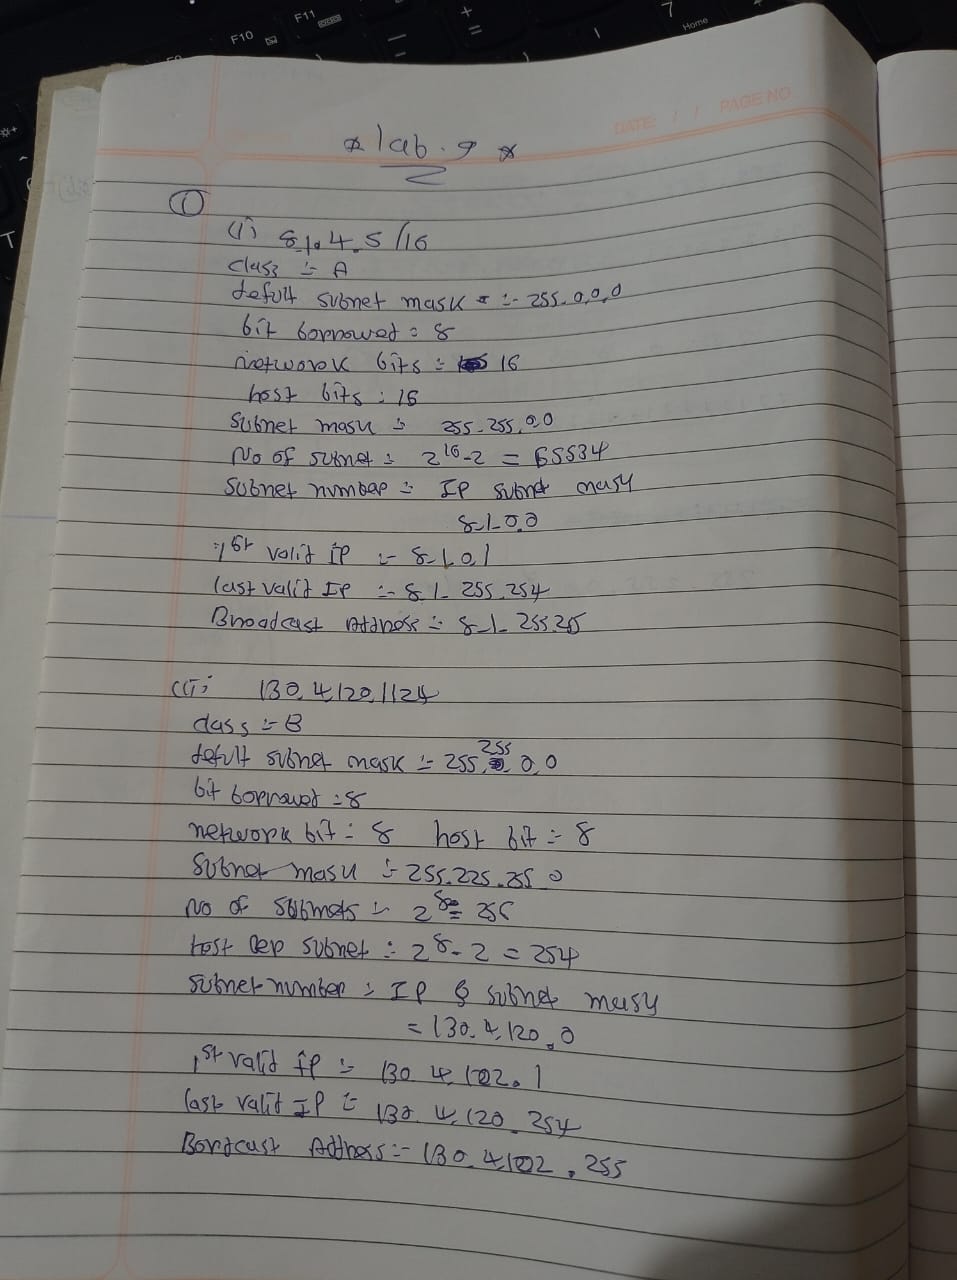 F10
F11
+
=
7
Home
T
DATE: / / PAGE NO.
* lab. 9 *
①
(i) 8.1.4.5/16
class :- A
defult subnet mask :- 255.0.0.0
bit borrowed : 8
network bits : 16
host bits : 16
Subnet mask :- 255.255.0.0
No of subnet :- 2^16-2 = 65534
Subnet number :- IP subnet mask
8.1.0.0
1st valid IP :- 8.1.0.1
last valid IP :- 8.1.255.254
Broadcast Address :- 8.1.255.25
(ii) 130.4.120.1124
class :- B
defult subnet mask :- 255.255.0.0
bit borrowed :- 8
network bit :- 8 host bit :- 8
Subnet mask :- 255.225.255.0
No of Subnets :- 2^8 = 256
host per subnet :- 2^8-2 = 254
Subnet number :- IP & subnet mask
= 130.4.120.0
1st valid IP :- 130.4.102.1
last valid IP :- 130.4.120.254
Bordcast Address :- 130.4.102.255